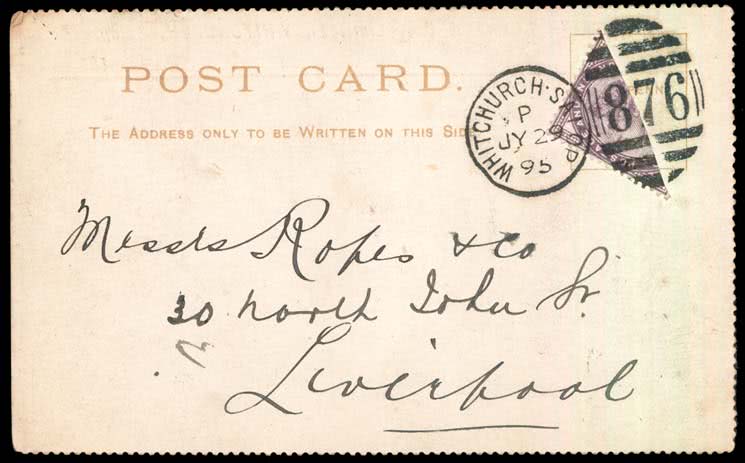 POST CARD.
THE ADDRESS ONLY TO BE WRITTEN ON THIS SID
WHITCHURCH·SALOP
P
JY 29
95
876
Messrs Ropes & Co
30 North John St.
Liverpool